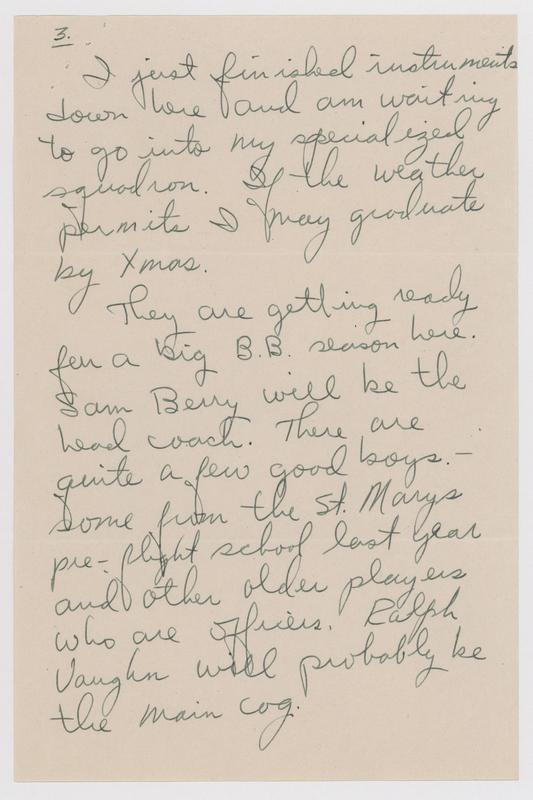 3.
I just finished instruments
down here and am waiting
to go into my specialized
squadron. If the weather
permits I may graduate
by Xmas.
They are getting ready
for a big B.B. season here.
Sam Berry will be the
head coach. There are
quite a few good boys.—
some from the St. Marys
pre-flight school last year
and other older players
who are officers. Ralph
Vaughn will probably be
the main cog.